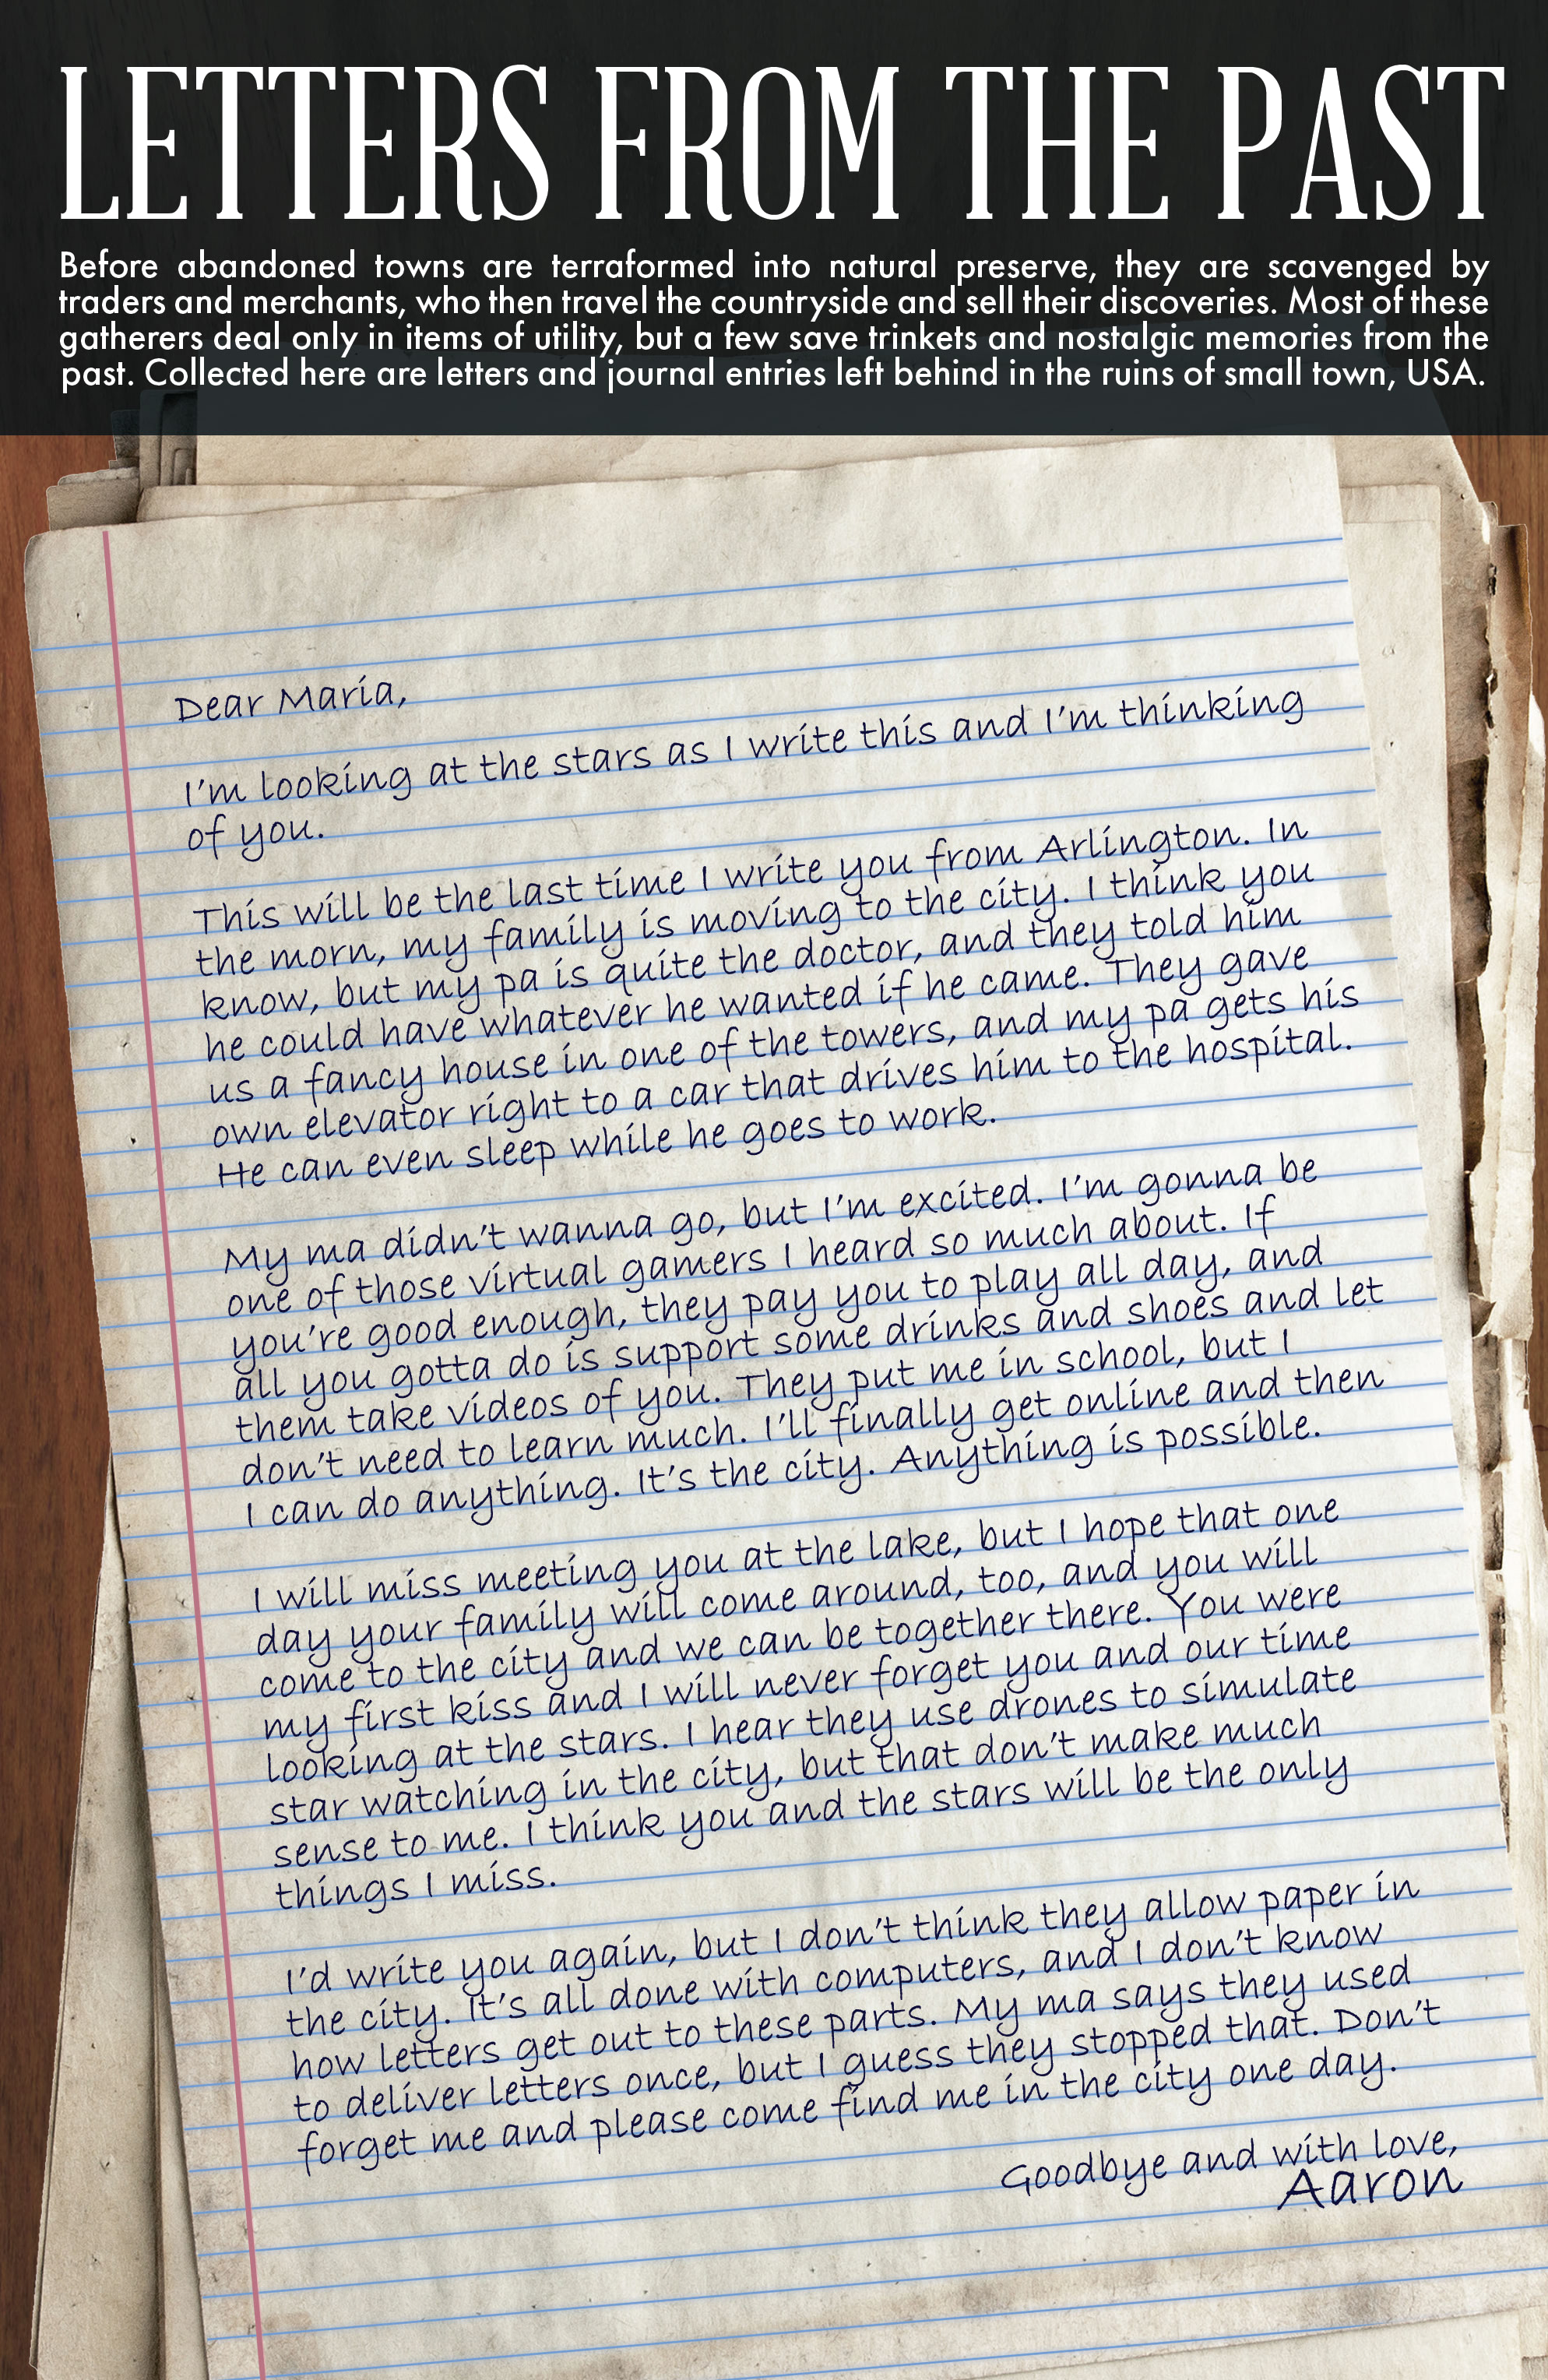 LETTERS FROM THE PAST
Before abandoned towns are terraformed into natural preserve, they are scavenged by
traders and merchants, who then travel the countryside and sell their discoveries. Most of these
gatherers deal only in items of utility, but a few save trinkets and nostalgic memories from the
past. Collected here are letters and journal entries left behind in the ruins of small town, USA.
Dear Maria,
I'm looking at the stars as I write this and I'm thinking
of you.
This will be the last time I write you from Arlington. In
the morn, my family is moving to the city. I think you
know, but my pa is quite the doctor, and they told him
he could have whatever he wanted if he came. They gave
us a fancy house in one of the towers, and my pa gets his
own elevator right to a car that drives him to the hospital.
He can even sleep while he goes to work.
My ma didn't wanna go, but I'm excited. I'm gonna be
one of those virtual gamers I heard so much about. If
you're good enough, they pay you to play all day, and
all you gotta do is support some drinks and shoes and let
them take videos of you. They put me in school, but I
don't need to learn much. I'll finally get online and then
I can do anything. It's the city. Anything is possible.
I will miss meeting you at the lake, but I hope that one
day your family will come around, too, and you will
come to the city and we can be together there. You were
my first kiss and I will never forget you and our time
looking at the stars. I hear they use drones to simulate
star watching in the city, but that don't make much
sense to me. I think you and the stars will be the only
things I miss.
I'd write you again, but I don't think they allow paper in
the city. It's all done with computers, and I don't know
how letters get out to these parts. My ma says they used
to deliver letters once, but I guess they stopped that. Don't
forget me and please come find me in the city one day.
Goodbye and with love,
Aaron